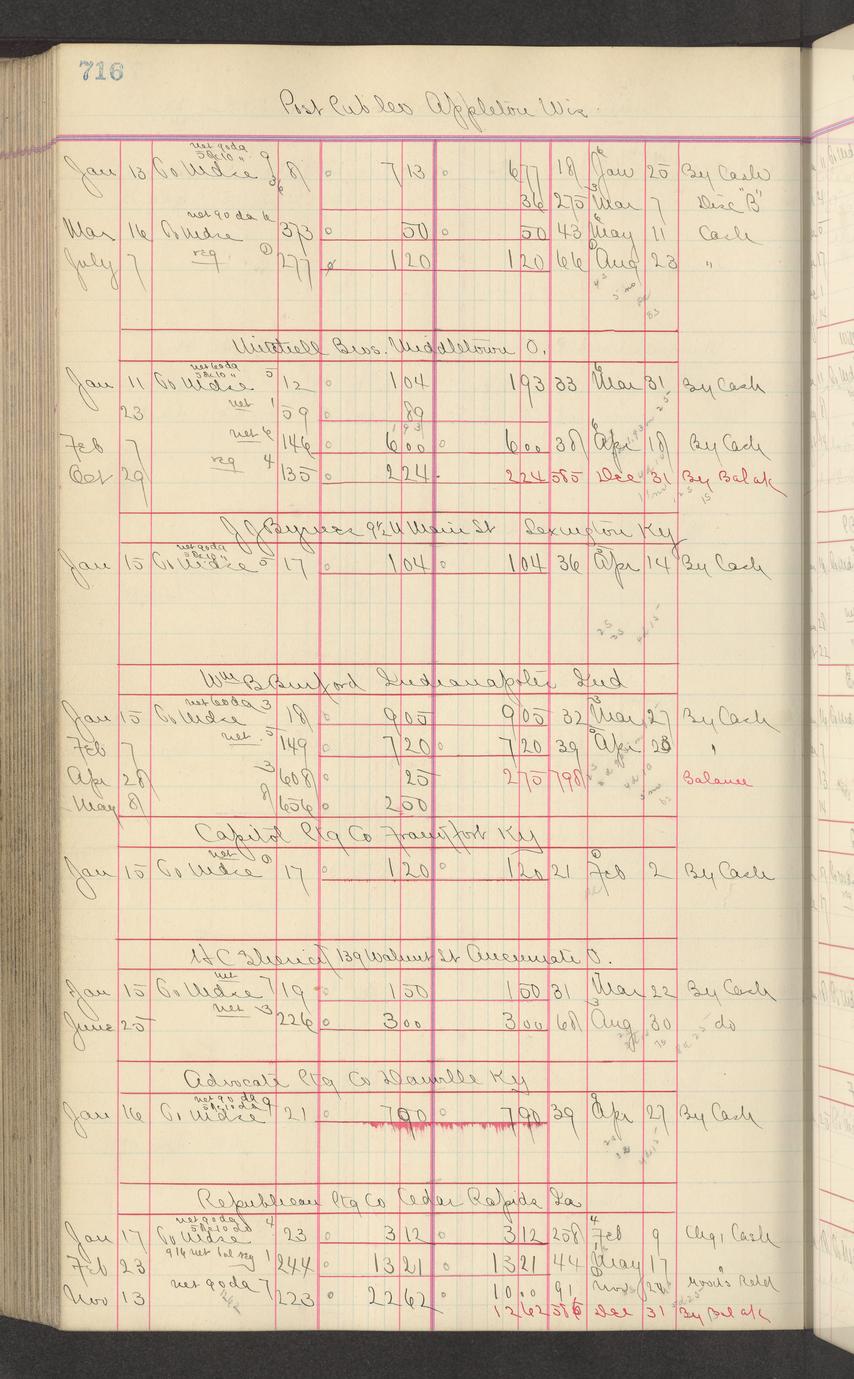 716
Post Pub Co Appleton Wis
net 90 da
5 & 10 "
Jan 13 To Mdse 9 8 7 13 6 77 18 Jan 25 By Cash
36 275 Mar 7 Disc "B"
net 90 da
Mar 16 To Mdse 373 50 50 43 May 11 Cash
July 7 reg 277 1 20 1 20 66 Aug 23 "
Bros. Middletown O.
net 60 da
5 & 10 "
Jan 11 To Mdse 5 12 1 04 1 93 33 Mar 31 By Cash
23 net 1 59 89
1 93
Feb 7 net 6 146 6 00 6 00 38 Apr 18 By Cash
Oct 29 reg 4 135 2 24 2 24 585 Dec 31 By Balak
J J Byrnes Main St Lexington Ky
net 90 da
5 & 10 "
Jan 15 To Mdse 5 17 1 04 1 04 36 Apr 14 By Cash
Wm B Burford Indianapolis Ind
net 60 da
Jan 15 To Mdse 3 18 9 05 9 05 32 Mar 27 By Cash
Feb 7 net 5 149 7 20 7 20 39 Apr 28 "
Apr 28 3 608 25 2 75 798 Balance
May 8 8 656 2 50
Capitol Ptg Co Frankfort Ky
net
Jan 15 To Mdse 17 1 20 1 20 21 Feb 2 By Cash
H C Sherick 139 Walnut St Cincinnati O.
net
Jan 15 To Mdse 7 19 1 50 1 50 31 Mar 22 By Cash
June 25 net 3 226 3 00 3 00 68 Aug 30 do
Advocate Ptg Co Danville Ky
net 90 da
5 & 10 da
Jan 16 To Mdse 9 21 7 90 7 90 39 Apr 27 By Cash
Republican Ptg Co Cedar Rapids Ia
net 90 da
5 & 10 do
Jan 17 To Mdse 4 23 3 12 3 12 258 Feb 9 Chgs Cash
Feb 23 net bal reg 1 244 13 21 13 21 44 May 17 "
Nov 13 net 90 da 7 223 22 62 10 00 91 Nov 28 Goods Retd
12 62 586 Dec 31 By Balak